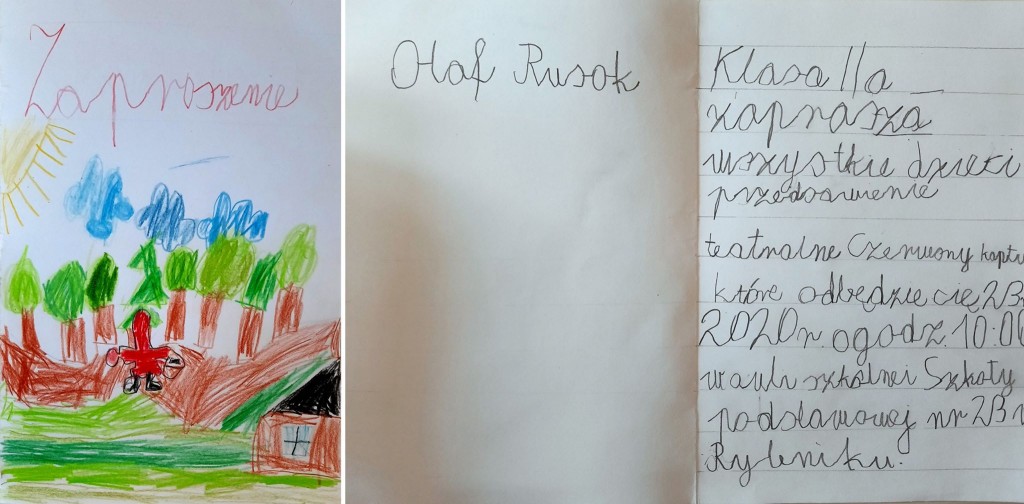 Zaproszenie
Olaf Rusok
Klasa IIa
zaprasza
wszystkie dzieki
przedsawienie
teatralne Czerwony kaptu
które odbędzie cię 23
2020r o godz 10:00
w auli szkolnei Szkoły
podstawowej nr 23 w
Rybniku.